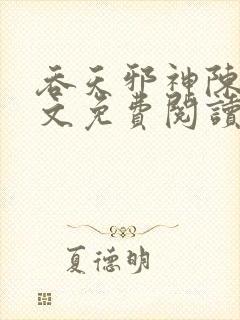 吞天邪神陳
文免費閱讀
夏德明